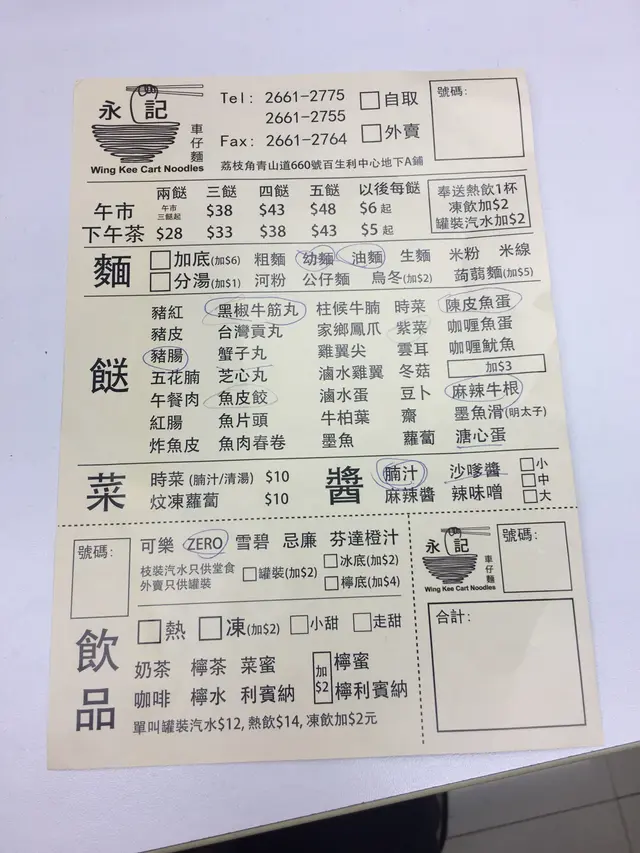 永記
車仔麵
Wing Kee Cart Noodles
Tel: 2661-2775
2661-2755
Fax: 2661-2764
自取
外賣
號碼:
荔枝角青山道660號百生利中心地下A鋪
兩餸 三餸 四餸 五餸 以後每餸
午市 午市三餸起 $38 $43 $48 $6起
下午茶 $28 $33 $38 $43 $5起
奉送熱飲1杯
凍飲加$2
罐裝汽水加$2
麵
加底(加$6) 粗麵 幼麵 油麵 生麵 米粉 米線
分湯(加$1) 河粉 公仔麵 烏冬(加$2) 蒟蒻麵(加$5)
餸
豬紅 黑椒牛筋丸 柱候牛腩 時菜 陳皮魚蛋
豬皮 台灣貢丸 家鄉鳳爪 紫菜 咖喱魚蛋
豬腸 蟹子丸 雞翼尖 雲耳 咖喱魷魚
五花腩 芝心丸 滷水雞翼 冬菇 加$3
午餐肉 魚皮餃 滷水蛋 豆卜 麻辣牛根
紅腸 魚片頭 牛柏葉 齋 墨魚滑(明太子)
炸魚皮 魚肉春卷 墨魚 蘿蔔 溏心蛋
菜
時菜 (腩汁/清湯) $10
炆凍蘿蔔 $10
醬
腩汁 沙嗲醬 小
中
麻辣醬 辣味噌 大
號碼:
可樂 ZERO 雪碧 忌廉 芬達橙汁
枝裝汽水只供堂食
外賣只供罐裝
罐裝(加$2)
冰底(加$2)
檸底(加$4)
飲品
熱 凍(加$2) 小甜 走甜
奶茶 檸茶 菜蜜 加$2 檸蜜
咖啡 檸水 利賓納 檸利賓納
單叫罐裝汽水$12, 熱飲$14, 凍飲加$2元
永記
車仔麵
Wing Kee Cart Noodles
號碼:
合計: